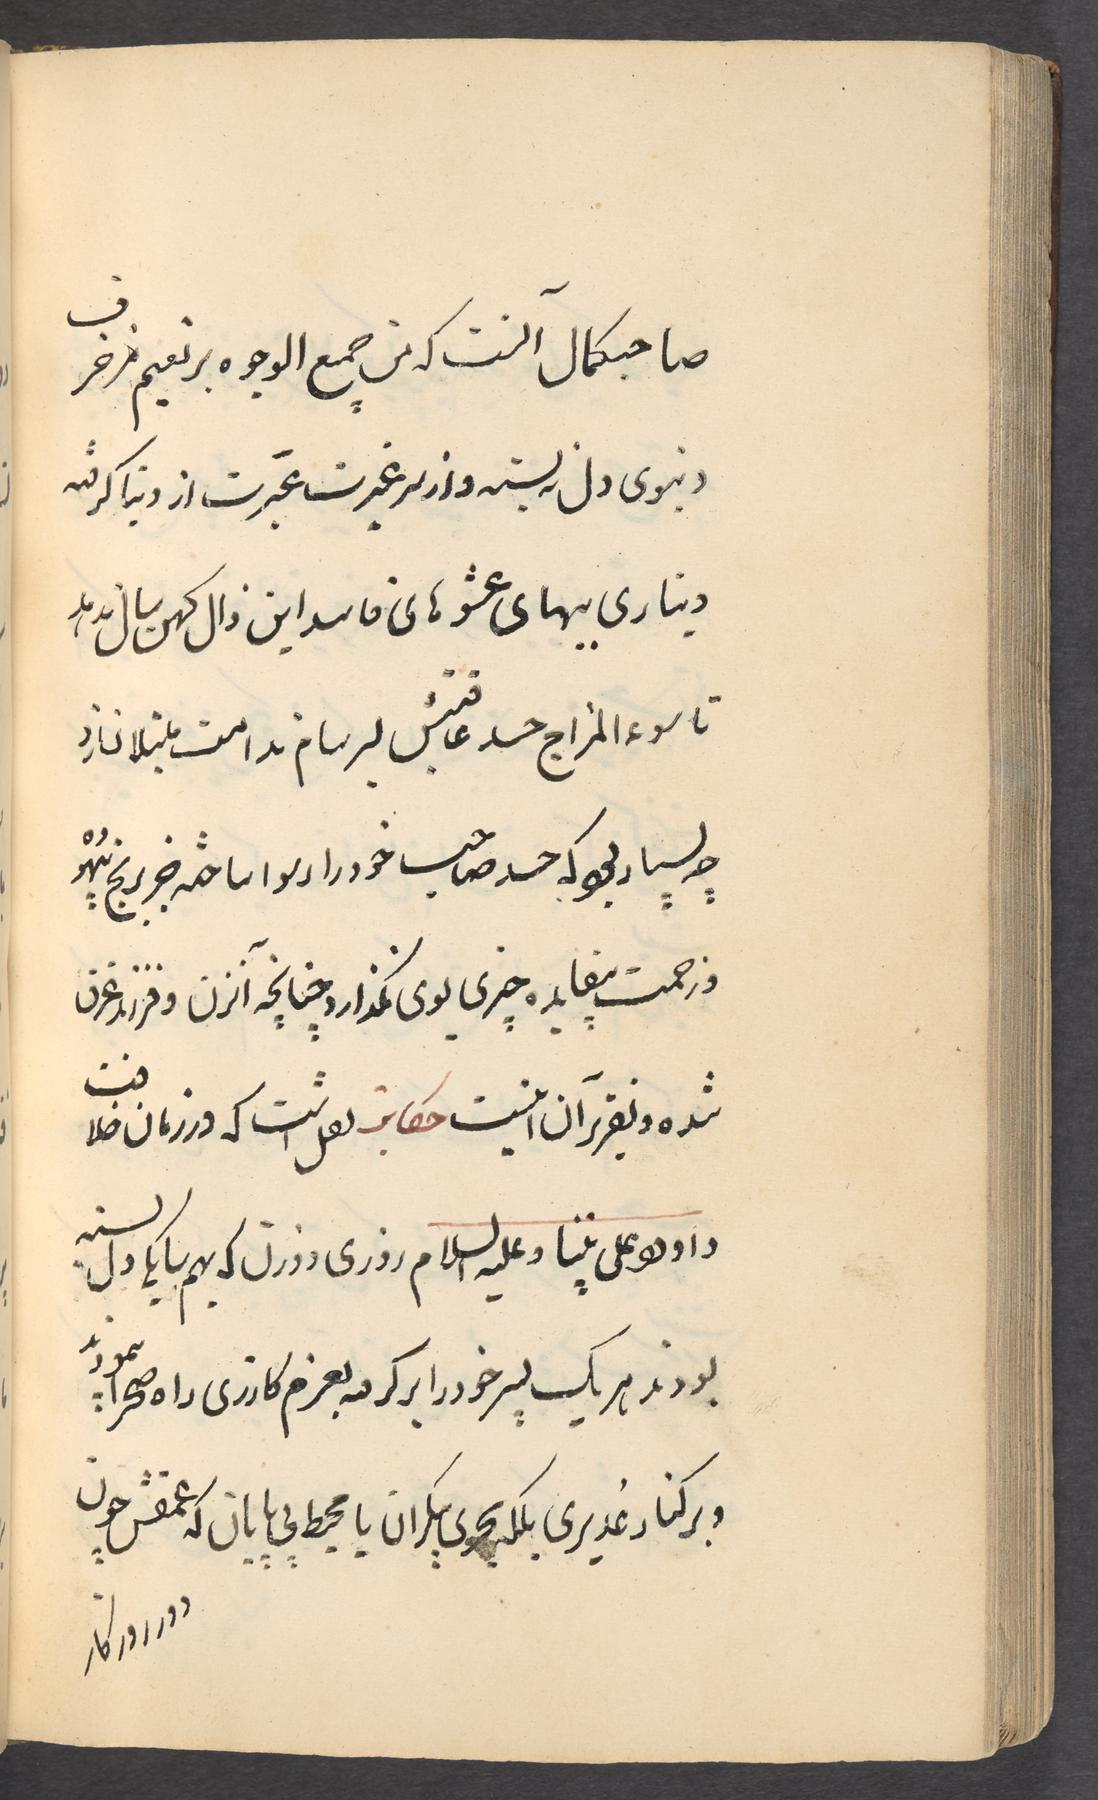 صاحبکمال آنست که من جمیع الوجوه بر نعیم مزخرف
دنیوی دل نه بسته و از سر غیرت عبرت از دنیا گرفته
دیناری ببهای عشوهای فاسد این زال کهن سال ندهد
تا سوء المزاج حسد عاقبتش بسرسام ندامت مبتلا نسازد
چه بسیار بود که حسد صاحب خود را رسوا ساخته جز رنج بیهوده
و زحمت بیفایده چیزی بوی نگذارد چنانچه آنزن و فرزند غرق
شده و تقریر آن اینست حکایت نقل است که در زمان خلافت
داود علی نبینا و علیه السلام روزی دو زن که بهم بیکجا دل بسته
بودند هر یک پسر خود را بر گرفته بعزم کازری راه صحرا پیمودند
و بر کنار غدیری بلکه بحری بیکران یا محیط بی پایان که عمقش چون
دور روزکار